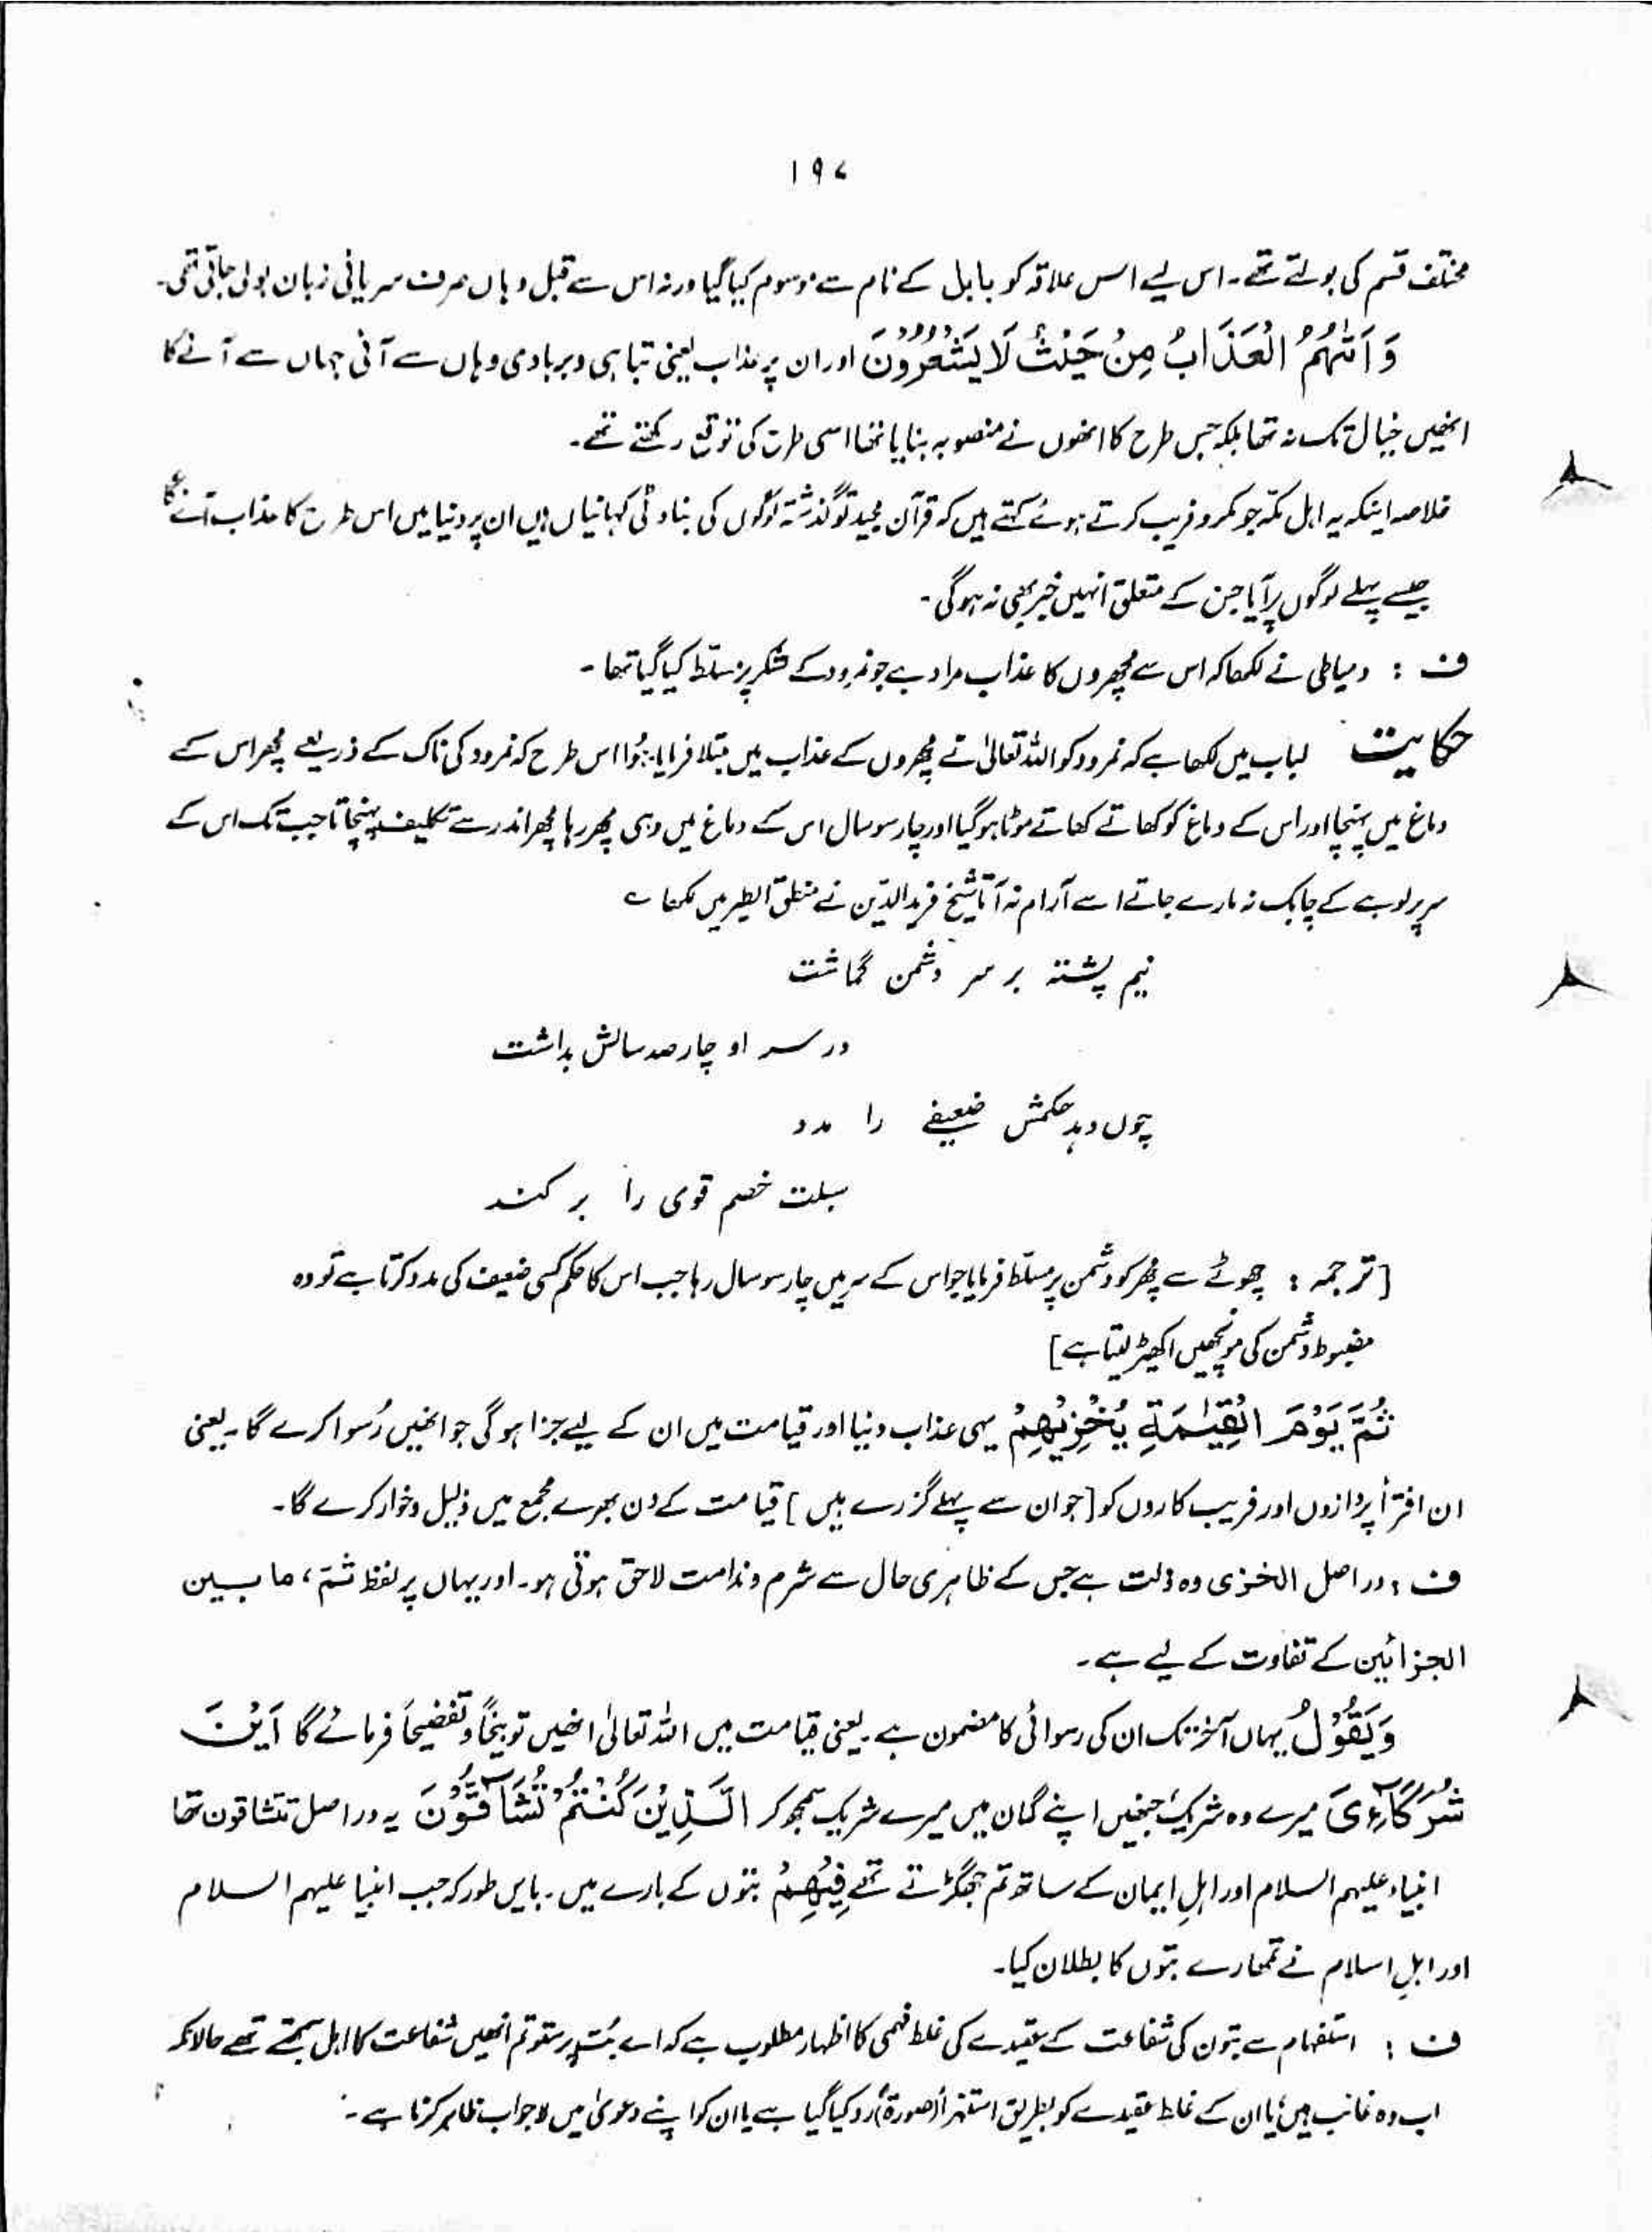 ۱۹۷
مختلف قسم کی بولتے تھے۔ اس لیے اس علاقہ کو بابل کے نام سے موسوم کیا گیا ورنہ اس سے قبل وہاں صرف سریانی زبان بولی جاتی تھی۔
وَاَتٰىهُمُ الْعَذَابُ مِنْ حَيْثُ لَا يَشْعُرُوْنَ اور ان پر عذاب یعنی تباہی و بربادی وہاں سے آئی جہاں سے آنے کا
انھیں خیال تک نہ تھا بلکہ جس طرح کا انھوں نے منصوبہ بنایا تھا اسی طرح کی توقع رکھتے تھے۔
خلاصہ اینکہ یہ اہل مکّہ جو مکر و فریب کرتے ہوئے کہتے ہیں کہ قرآن مجید تو گذشتہ لوگوں کی بناوٹی کہانیاں ہیں ان پر دنیا میں اس طرح کا عذاب آئے گا
جیسے پہلے لوگوں پر آیا جن کے متعلق انہیں خبر بھی نہ ہوگی۔
ف : دمیاطی نے لکھا کہ اس سے مچھروں کا عذاب مراد ہے جو نمرود کے لشکر پر مسلّط کیا گیا تھا۔
حکایت لباب میں لکھا ہے کہ نمرود کو اللہ تعالیٰ نے مچھروں کے عذاب میں مبتلا فرمایا۔ ہُوا اس طرح کہ نمرود کی ناک کے ذریعے مچھر اس کے
دماغ میں پہنچا اور اس کے دماغ کو کھاتے کھاتے موٹا ہو گیا اور چار سو سال اس کے دماغ میں وہی مچھر رہا مچھر اندر سے تکلیف پہنچاتا جب تک اس کے
سر پر لوہے کے چابک نہ مارے جاتے اسے آرام نہ آتا شیخ فرید الدّین نے منطق الطیر میں لکھا ؎
نیم پشّہ بر سر دشمن گماشت
در سر او چار صد سالش بداشت
چوں دہد حکمش ضعیفے را مدد
سبلت خصم قوی را بر کند
[ترجمہ : چھوٹے سے مچھر کو دشمن پر مسلّط فرمایا جو اس کے سر میں چار سو سال رہا جب اس کا حکم کسی ضعیف کی مدد کرتا ہے تو وہ
مضبوط دشمن کی مونچھیں اکھیڑ لیتا ہے]
ثُمَّ يَوْمَ الْقِيٰمَةِ يُخْزِيْهِمْ یہی عذاب دنیا اور قیامت میں ان کے لیے جزا ہوگی جو انھیں رُسوا کرے گا۔ یعنی
ان افترأ پردازوں اور فریب کاروں کو [جو ان سے پہلے گزرے ہیں] قیامت کے دن بھرے مجمع میں ذلیل و خوار کرے گا۔
ف : دراصل الخزی وہ ذلت ہے جس کے ظاہری حال سے شرم و ندامت لاحق ہوتی ہو۔ اور یہاں پر لفظ ثمّ ، ما بین
الجزائین کے تفاوت کے لیے ہے۔
وَيَقُوْلُ یہاں آخر تک ان کی رسوائی کا مضمون ہے۔ یعنی قیامت میں اللہ تعالیٰ انھیں توبیخاً و تفضیحاً فرمائے گا اَيْنَ
شُرَكَآءِيَ میرے وہ شریک جنھیں اپنے گمان میں میرے شریک سمجھ کر الَّذِيْنَ كُنْتُمْ تُشَآقُّوْنَ یہ دراصل تتشاقون تھا
انبیاء علیہم السلام اور اہلِ ایمان کے ساتھ تم جھگڑتے تھے فِيْهِمْ بتوں کے بارے میں۔ بایں طور کہ جب انبیا علیہم السلام
اور اہلِ اسلام نے تمھارے بتوں کا بطلان کیا۔
ف : استفہام سے بتوں کی شفاعت کے عقیدے کی غلط فہمی کا اظہار مطلوب ہے کہ اے بُت پرستو تم انھیں شفاعت کا اہل سمجھتے تھے حالانکہ
اب وہ غائب ہیں؛ یا ان کے غلط عقیدے کو بطریق استہزأ (صورۃً) رد کیا گیا ہے یا ان کو اپنے دعویٰ میں لاجواب ظاہر کرنا ہے۔